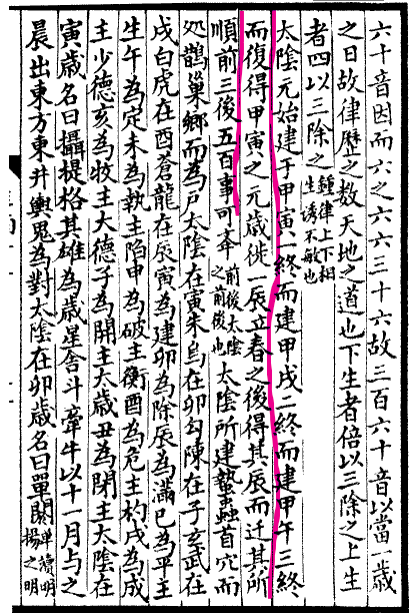 六十音因而六之六六三十六故三百六十音以當一歲
之日故律歷之數天地之道也下生者倍以三除之上生
者四以三除之鍾律上下相生誘不敏也
太陰元始建于甲寅一終而建甲戌二終而建甲午三終
而復得甲寅之元歲徙一辰立春之後得其辰而迁其所
順前三後五百事可舉前後太陰之前後也太陰所建蟄蟲首穴而
処鵲巢鄉而為戶太陰在寅朱鳥在卯勾陳在子玄武在
戌白虎在酉蒼龍在辰寅為建卯為除辰為滿巳為平主
生午為定未為執主陷申為破主衡酉為危主杓戌為成
主少德亥為收主大德子為開主太歲丑為閉主太陰在
寅歲名曰攝提格其雄為歲星舍斗牽牛以十一月與之
晨出東方東井輿鬼為對太陰在卯歲名曰單閼單讀明揚之明